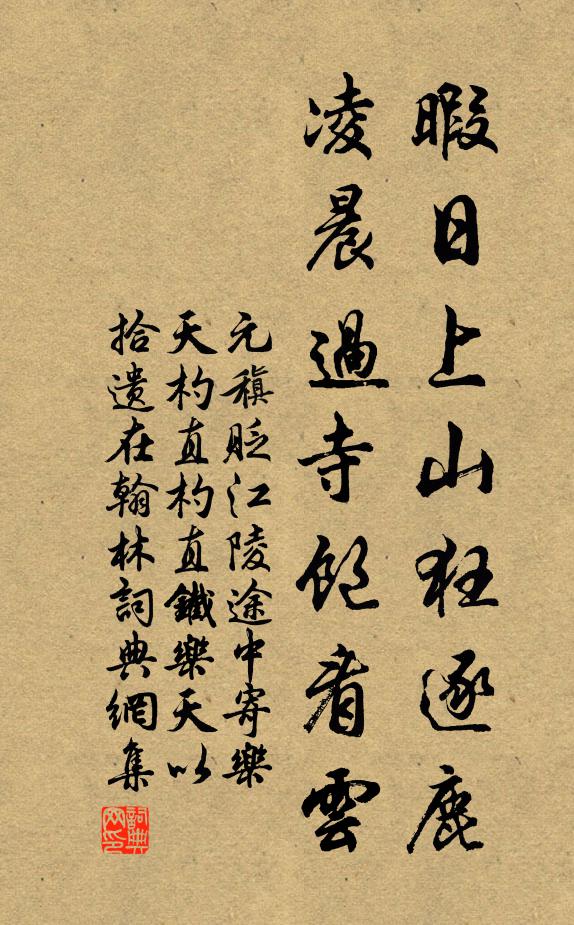 暇日上山狂逐鹿
凌晨過寺飽看雲
元稹貶江陵途中寄樂
天杓直杓直鐵樂天以
拾遺在翰林詞典網集
詞典網印